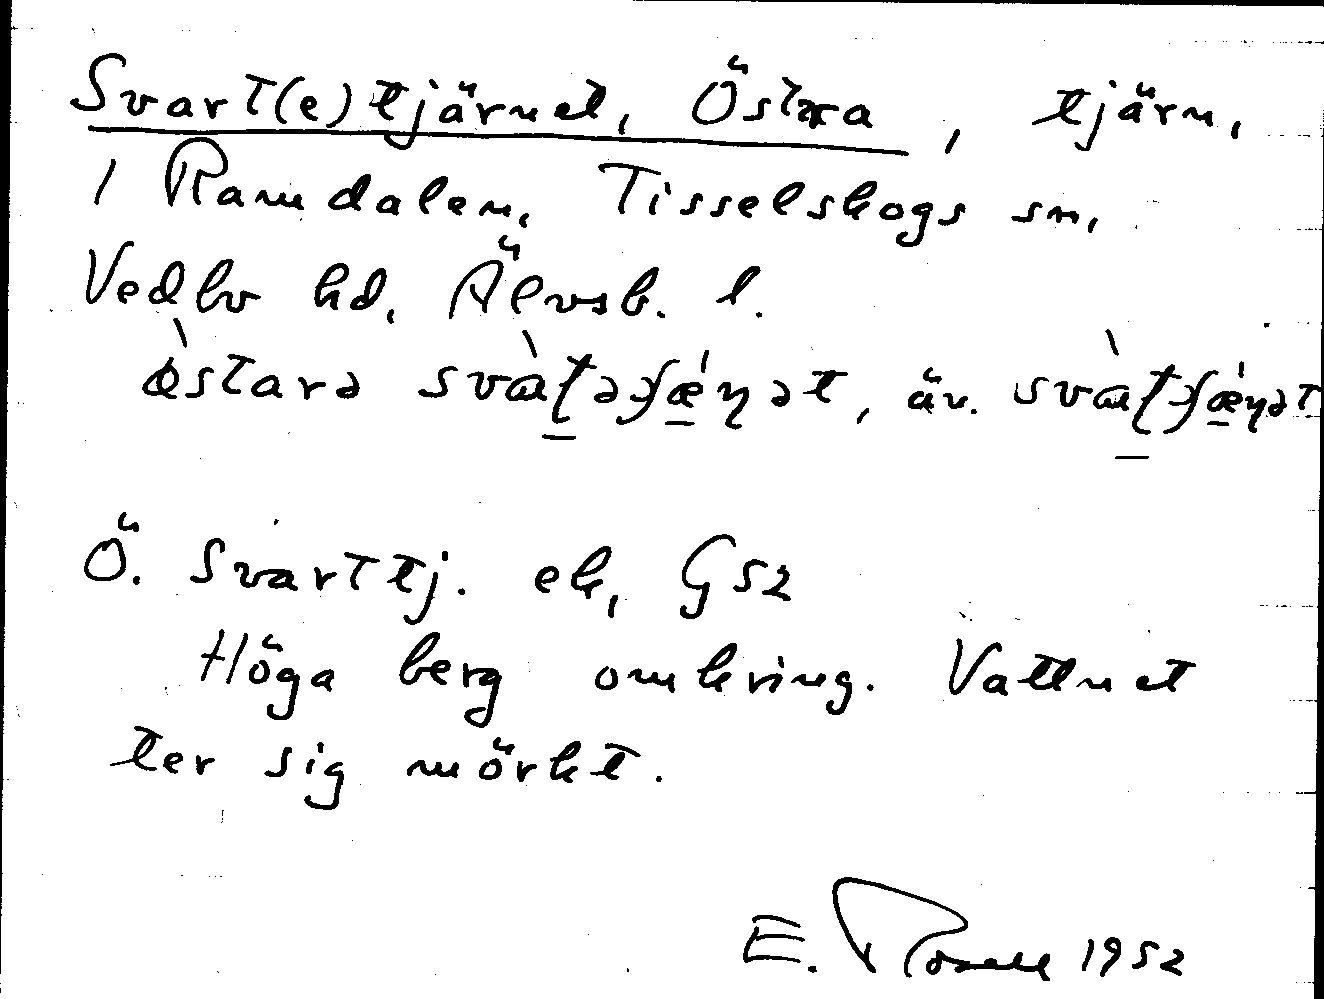 Svart(e)tjärnet, Östra, tjärn,
1 Ramdalen, Tisselskogs sn,
Vedbo hd, Älvsb. l.
Ö. Svarttj. ek, G52
Höga berg omkring. Vattnet
ter sig mörkt.
E. Rosell 1952